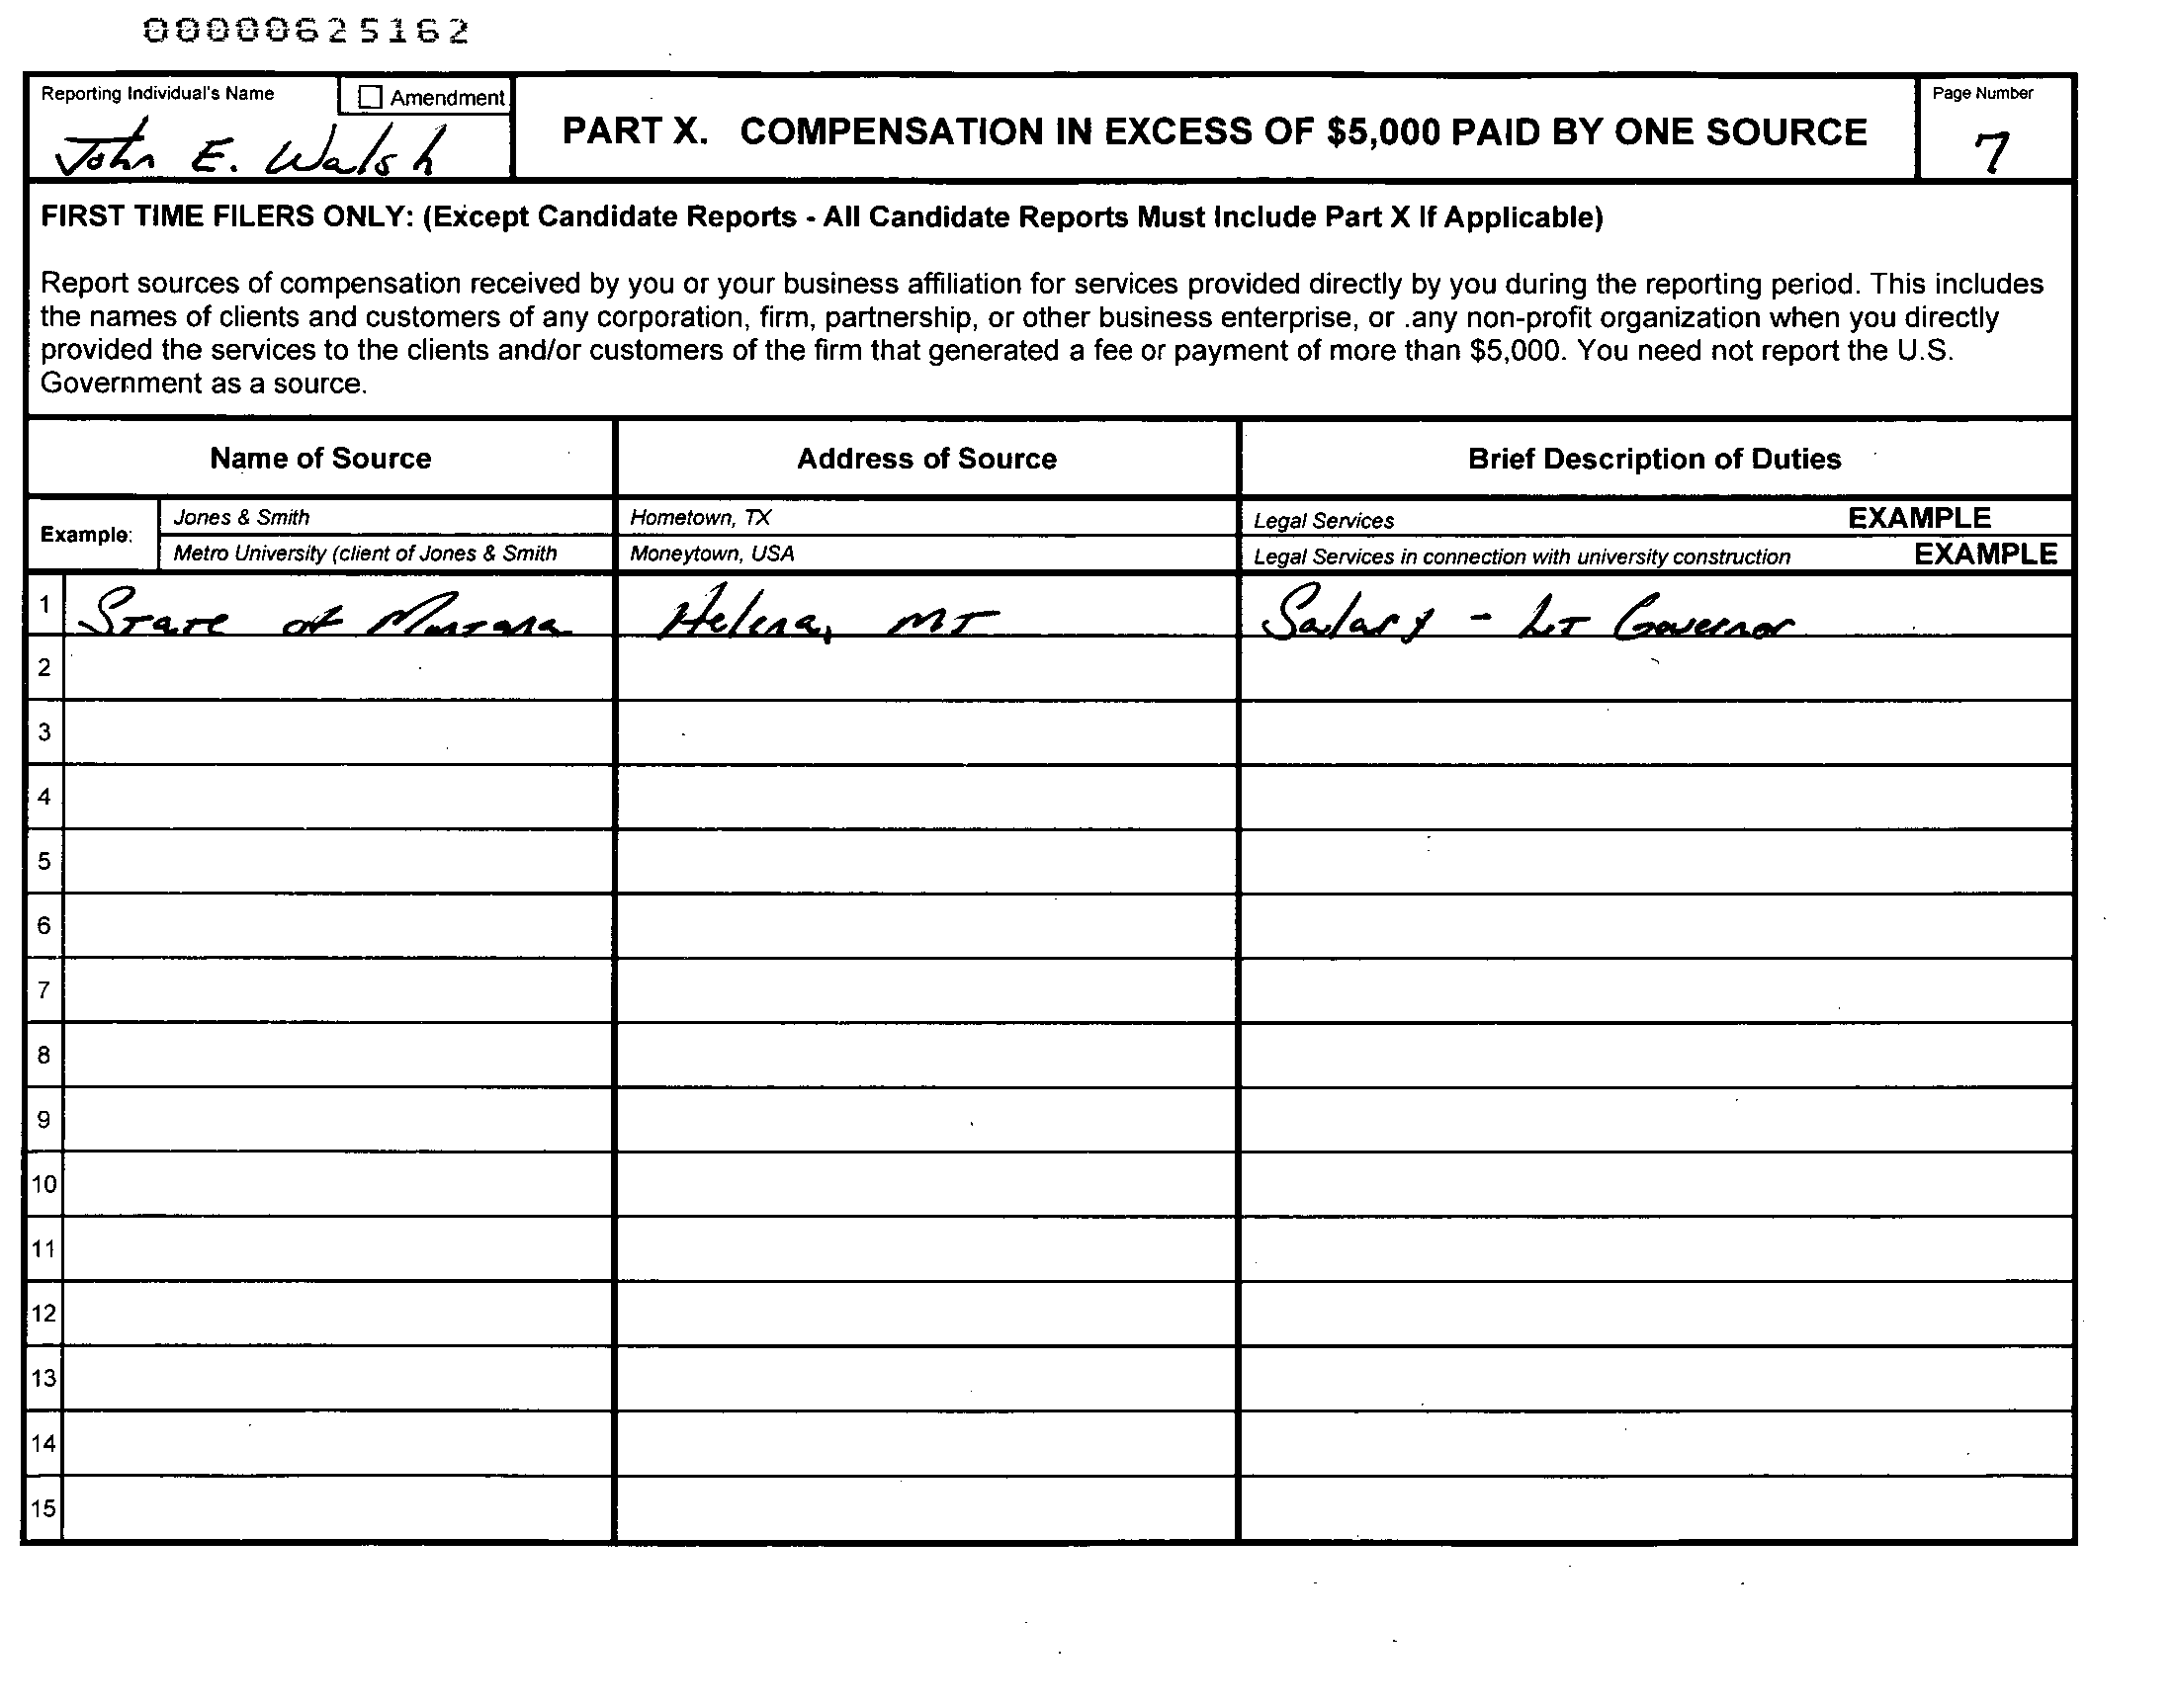 00000625162
Reporting Individual's Name
Amendment
John E. Walsh
PART X. COMPENSATION IN EXCESS OF $5,000 PAID BY ONE SOURCE
Page Number
7
FIRST TIME FILERS ONLY: (Except Candidate Reports - All Candidate Reports Must Include Part X If Applicable)
Report sources of compensation received by you or your business affiliation for services provided directly by you during the reporting period. This includes
the names of clients and customers of any corporation, firm, partnership, or other business enterprise, or .any non-profit organization when you directly
provided the services to the clients and/or customers of the firm that generated a fee or payment of more than $5,000. You need not report the U.S.
Government as a source.
Name of Source Address of Source Brief Description of Duties
Example:
Jones & Smith Hometown, TX Legal Services EXAMPLE
Metro University (client of Jones & Smith Moneytown, USA Legal Services in connection with university construction EXAMPLE
1 State of Montana Helena, MT Salary - Lt Governor
2
3
4
5
6
7
8
9
10
11
12
13
14
15